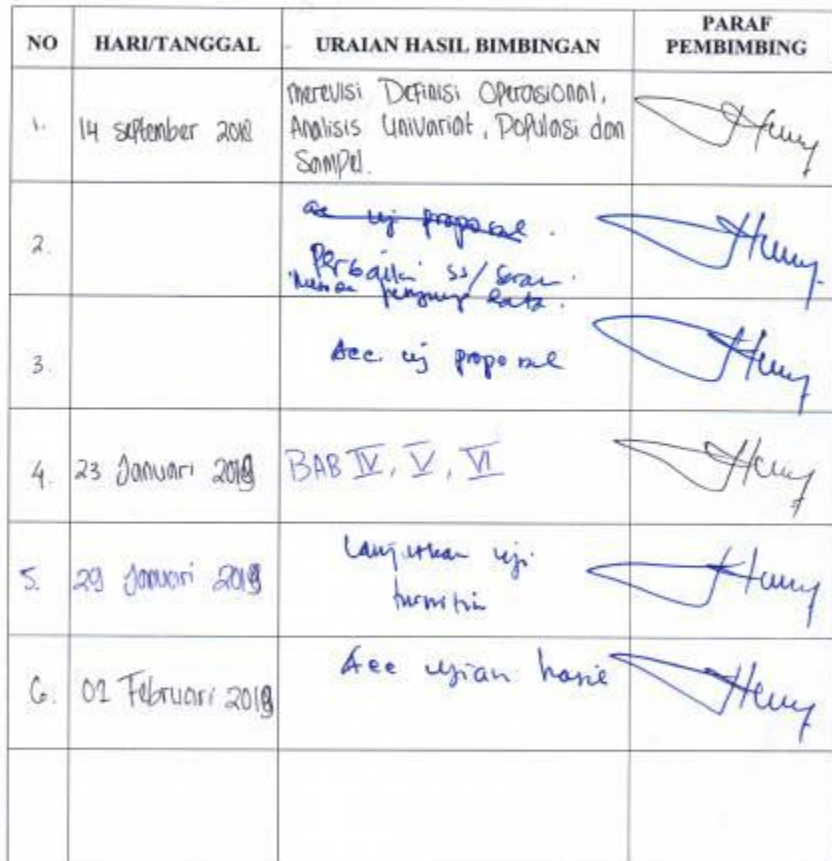 NO HARI/TANGGAL URAIAN HASIL BIMBINGAN PARAF PEMBIMBING
1. 14 september merevisi Definisi Operasional,
Analisis Univariat, Populasi dan
Sampel.
2. acc uj proposal.
Perbaiki ss/saran
data.
3. Acc. uj proposal
4. 23 Januari 2019 BAB IV, V, VI
5. 29 Januari 2019 Lanjutkan uji
turnitin
6. 02 Februari 2019 Acc ujian hasil